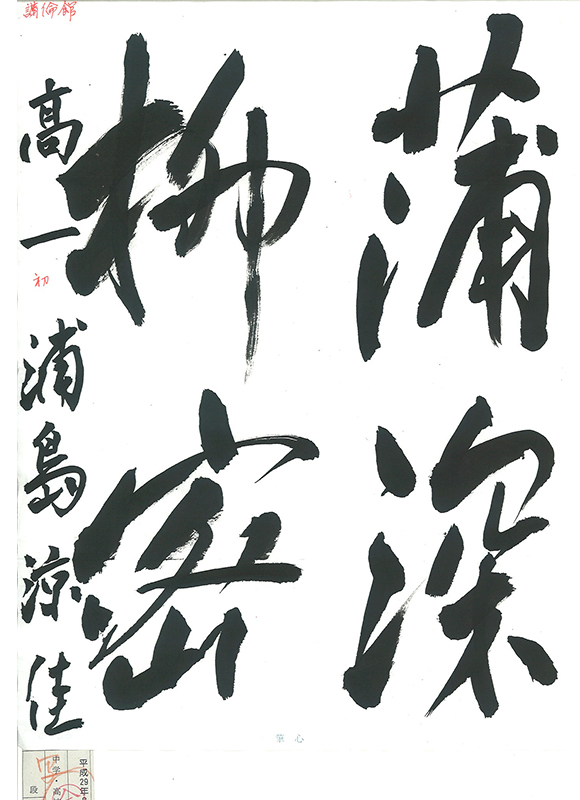 蒲深
柳密
高一 浦島涼佳
初
講倫館
筆心
平成29年
中学・高
段